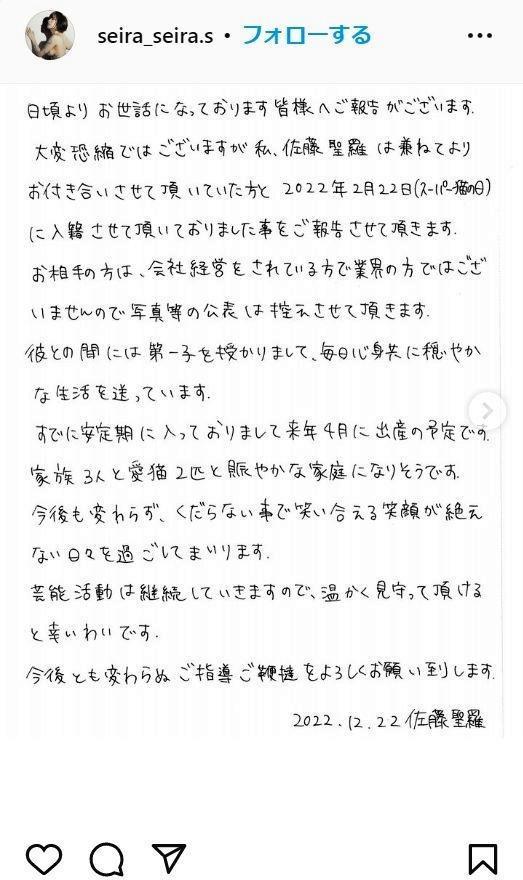 seira_seira.s • フォローする
日頃よりお世話になっております皆様へご報告がございます.
大変恐縮ではございますが私、佐藤聖羅は兼ねてより
お付き合いさせて頂いていた方と 2022年2月22日(スーパー猫の日)
に入籍させて頂いておりました事をご報告させて頂きます.
お相手の方は、会社経営をされている方で業界の方ではござ
いませんので写真等の公表は控えさせて頂きます.
彼との間には第一子を授かりまして、毎日心身共に穏やか
な生活を送っています.
すでに安定期に入っておりまして来年4月に出産の予定です.
家族3人と愛猫2匹と賑やかな家庭になりそうです.
今後も変わらず、くだらない事で笑い合える笑顔が絶え
ない日々を過ごしてまいります.
芸能活動は継続していきますので、温かく見守って頂ける
と幸いわいです.
今後とも変わらぬご指導ご鞭撻をよろしくお願い到します.
2022.12.22 佐藤聖羅